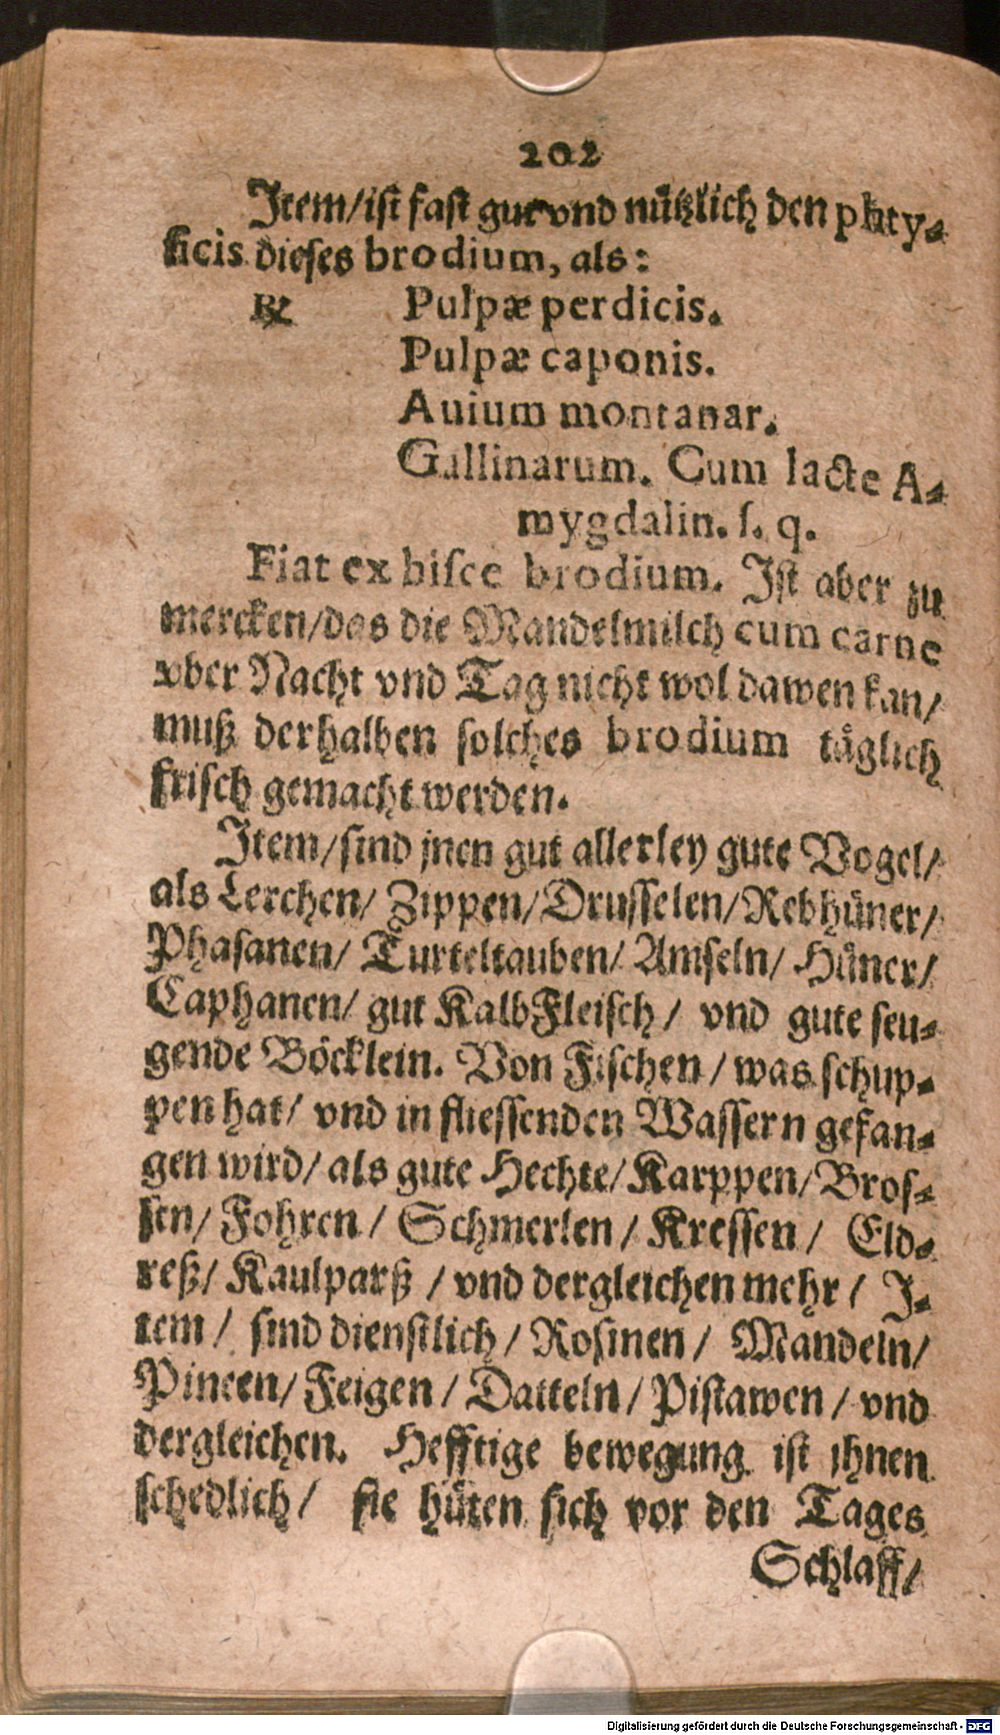 202
Item/ist fast gut vnd nützlich den phty⸗
sicis dieses brodium, als:
℞ Pulpæ perdicis.
Pulpæ caponis.
Auium montanar.
Gallinarum. Cum lacte A⸗
mygdalin. ſ. q.
Fiat ex hiſce brodium. Iſt aber zu
mercken/das die Mandelmilch cum carne
vber Nacht vnd Tag nicht wol dawen kan/
muß derhalben ſolches brodium täglich
friſch gemacht werden.
Item/ſind jnen gut allerley gute Vogel/
als Lerchen/ Zippen/Druſſelen/Rebhüner/
Phaſanen/ Turteltauben/ Amſeln/ Hüner/
Caphanen/ gut KalbFleiſch/ vnd gute ſeu⸗
gende Böcklein. Von Fiſchen/ was ſchup⸗
pen hat/ vnd in flieſſenden Waſſern gefan⸗
gen wird/ als gute Hechte/Karppen/Broſ⸗
ſen/ Fohren/ Schmerlen/ Kreſſen/ Eld⸗
reß/ Kaulparß/ vnd dergleichen mehr/ I⸗
tem/ ſind dienſtlich/ Roſinen/ Mandeln/
Pineen/ Feigen/ Datteln/ Piſtawen/ vnd
dergleichen. Hefftige bewegung iſt ihnen
ſchedlich/ ſie hüten ſich vor den Tages
Schlaff/
Digitalisierung gefördert durch die Deutsche Forschungsgemeinschaft - DFG